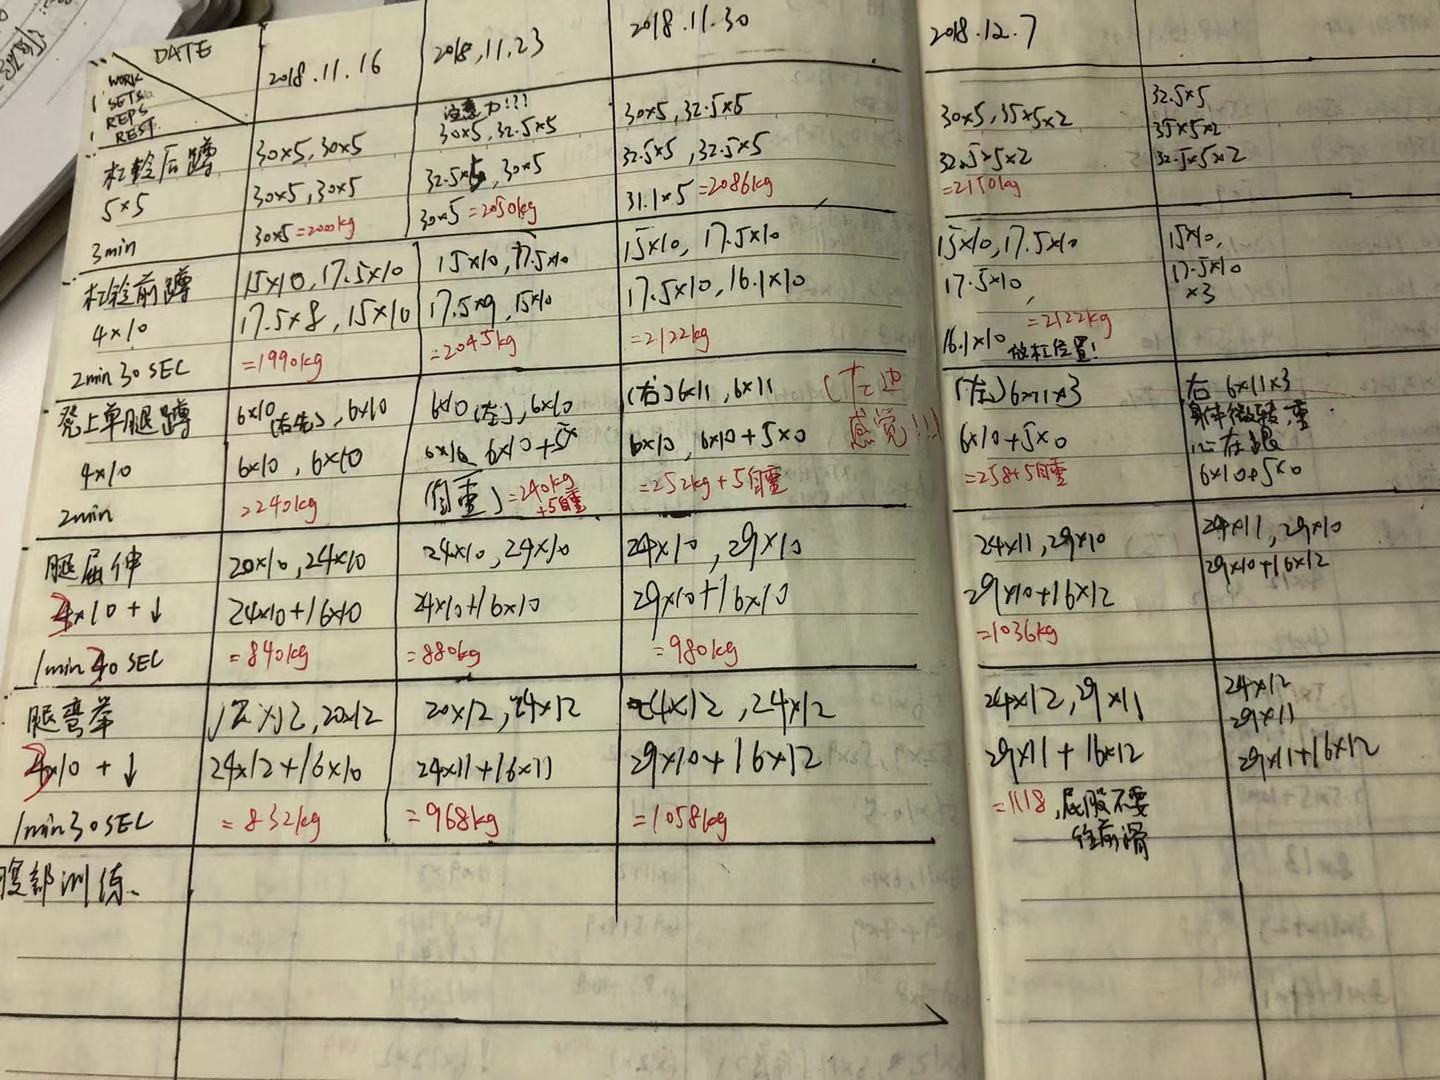 DATE
WORK
SETS
REPS
REST
2018.11.16
2018.11.23
2018.11.30
2018.12.7
杠铃后蹲
5×5
3min
30×5, 30×5
30×5, 30×5
30×5 =2000kg
注意力!!!
30×5, 32.5×5
32.5×5, 30×5
30×5 =2050kg
30×5, 32.5×5
32.5×5, 32.5×5
31.1×5 =2086kg
30×5, 35×5×2
32.5×5×2
=2150kg
32.5×5
35×5×2
32.5×5×2
杠铃前蹲
4×10
2min 30 SEC
15×10, 17.5×10
17.5×8, 15×10
=1990kg
15×10, 17.5×10
17.5×9, 15×10
=2045kg
15×10, 17.5×10
17.5×10, 16.1×10
=2122kg
15×10, 17.5×10
17.5×10,
=2122kg
16.1×10 放杠位置!
15×10,
17.5×10
×3
凳上单腿蹲
4×10
2min
6×10 (右先), 6×10
6×10, 6×10
=240kg
6×10 (左), 6×10
6×10, 6×10+5×
(自重) =240kg
+5自重
(右) 6×11, 6×11
6×10, 6×10+5×0
=252kg+5自重
(左边
感觉!!!)
(左) 6×11×3
6×10+5×0
=258+5自重
右 6×11×3
身体微转, 重
心在跟
6×10+5×0
腿屈伸
×10+↓
1min 30 SEC
20×10, 24×10
24×10+16×10
=840kg
24×10, 24×10
24×10+16×10
=880kg
24×10, 29×10
29×10+16×10
=980kg
24×11, 29×10
29×10+16×12
=1036kg
24×11, 29×10
29×10+16×12
腿弯举
×10+↓
1min 30 SEC
×12, 20×12
24×12+16×10
=832kg
20×12, 24×12
24×11+16×11
=968kg
24×12, 24×12
29×10+16×12
=1058kg
24×12, 29×11
29×11+16×12
=1118, 屁股不要
往前滑
24×12
29×11
29×11+16×12
腹部训练